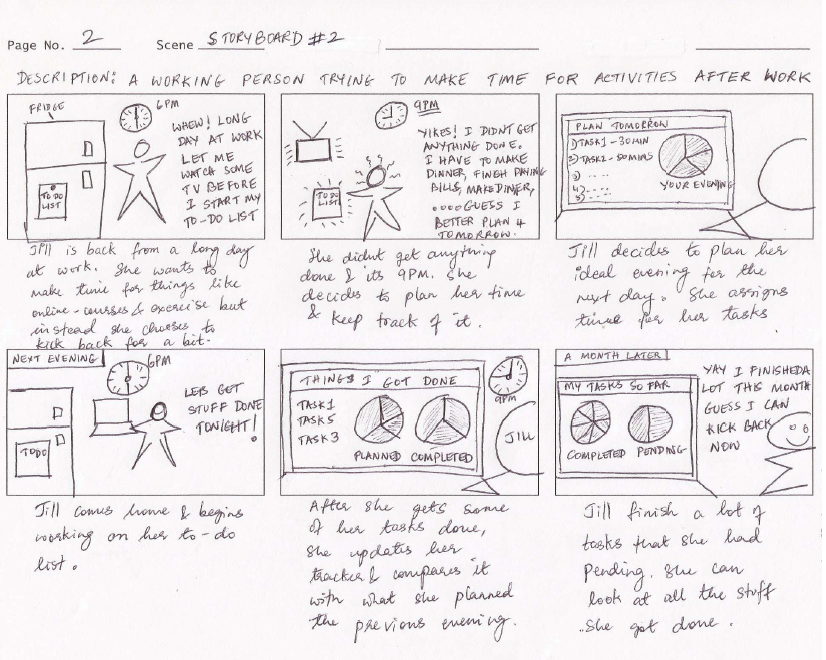 Page No. 2 Scene STORYBOARD #2
DESCRIPTION: A WORKING PERSON TRYING TO MAKE TIME FOR ACTIVITIES AFTER WORK
FRIDGE
6PM
WHEW! LONG
DAY AT WORK
LET ME
WATCH SOME
TV BEFORE
I START MY
TO-DO LIST
TO DO
LIST
Jill is back from a long day
at work. She wants to
make time for things like
online-courses & exercise but
instead she chooses to
kick back for a bit.
9PM
YIKES! I DIDNT GET
ANYTHING DONE.
I HAVE TO MAKE
DINNER, FINISH PAYING
BILLS, MAKE DINER,
....GUESS I
BETTER PLAN 4
TOMORROW.
TO DO
LIST
She didnt get anything
done & its 9PM. She
decides to plan her time
& keep track of it.
PLAN TOMORROW
1) TASK1 - 30MIN
2) TASK2 - 50MINS
3) ....
4) ....
5 ....
YOUR EVENING
Jill decides to plan her
ideal evening for the
next day. She assigns
time for her tasks
NEXT EVENING
6PM
LETS GET
STUFF DONE
TONIGHT!
TODO
Jill comes home & begins
working on her to-do
list.
THINGS I GOT DONE
TASK1
TASK5
TASK3
PLANNED COMPLETED
9PM
JILL
After she gets some
of her tasks done,
she updates her
tracker & compares it
with what she planned
the previous evening.
A MONTH LATER
MY TASKS SO FAR
COMPLETED PENDING
YAY I FINISHED A
LOT THIS MONTH
GUESS I CAN
KICK BACK
NOW
Jill finish a lot of
tasks that she had
pending. She can
look at all the stuff
she got done.